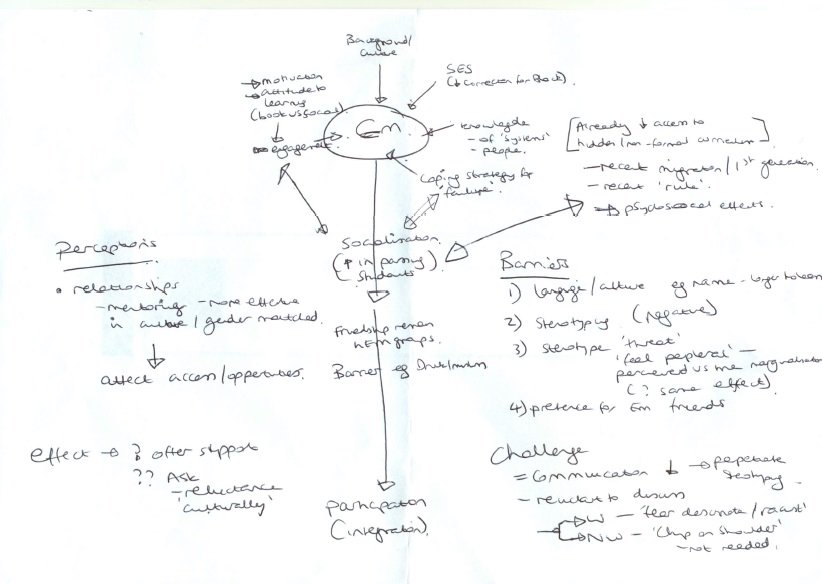 Background/
culture
SES
(↓ correction for Black).
→ motivation
→ attitude to
learning
(book vs social)
engagement
Em
knowledge
- of 'systems'
- people.
[Already ↓ access to
hidden/non-formal curriculum]
- recent migration / 1st generation
- recent 'rule'.
→ psychosocial effects.
Coping strategy for
'failure'
Socialisation
(↑ in passing)
students
Perceptions
• relationships
- mentoring - more effective
in culture/gender matched.
affect access/opportunities.
Friendship
groups.
Barrier eg Drink/
Barriers
1) language/culture eg name -
2) Stereotyping (negative)
3) Stereotype 'threat'
'feel peripheral' -
perceived vs true marginalisation
(? same effect)
4) preference for Em friends
effect → ? offer support
?? Ask
- reluctance
'culturally'
Participation
(integration).
Challenge
= Communication ↓ → perpetuate
stereotyping
- reluctant to discuss
W - 'fear / racist'
NW - 'Chip on shoulder'
- not needed.